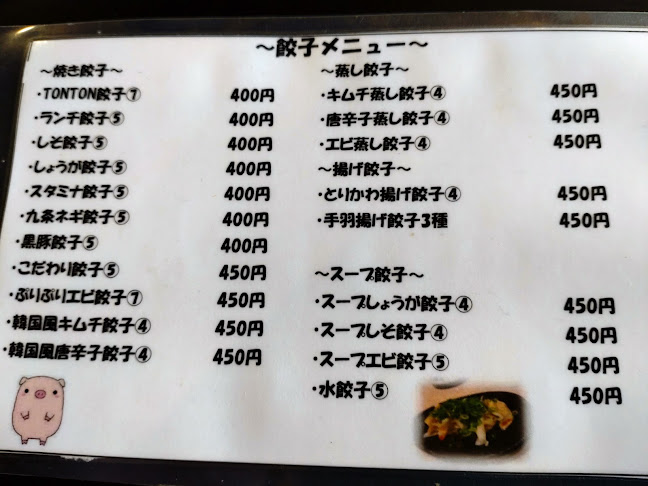 ～餃子メニュー～
～焼き餃子～
・TONTON餃子⑦ 400円
・ランチ餃子⑤ 400円
・しそ餃子⑤ 400円
・しょうが餃子⑤ 400円
・スタミナ餃子⑤ 400円
・九条ネギ餃子⑤ 400円
・黒豚餃子⑤ 400円
・こだわり餃子⑤ 450円
・ぷりぷりエビ餃子⑦ 450円
・韓国風キムチ餃子④ 450円
・韓国風唐辛子餃子④ 450円
～蒸し餃子～
・キムチ蒸し餃子④ 450円
・唐辛子蒸し餃子④ 450円
・エビ蒸し餃子④ 450円
～揚げ餃子～
・とりかわ揚げ餃子④ 450円
・手羽揚げ餃子3種 450円
～スープ餃子～
・スープしょうが餃子④ 450円
・スープしそ餃子④ 450円
・スープエビ餃子⑤ 450円
・水餃子⑤ 450円